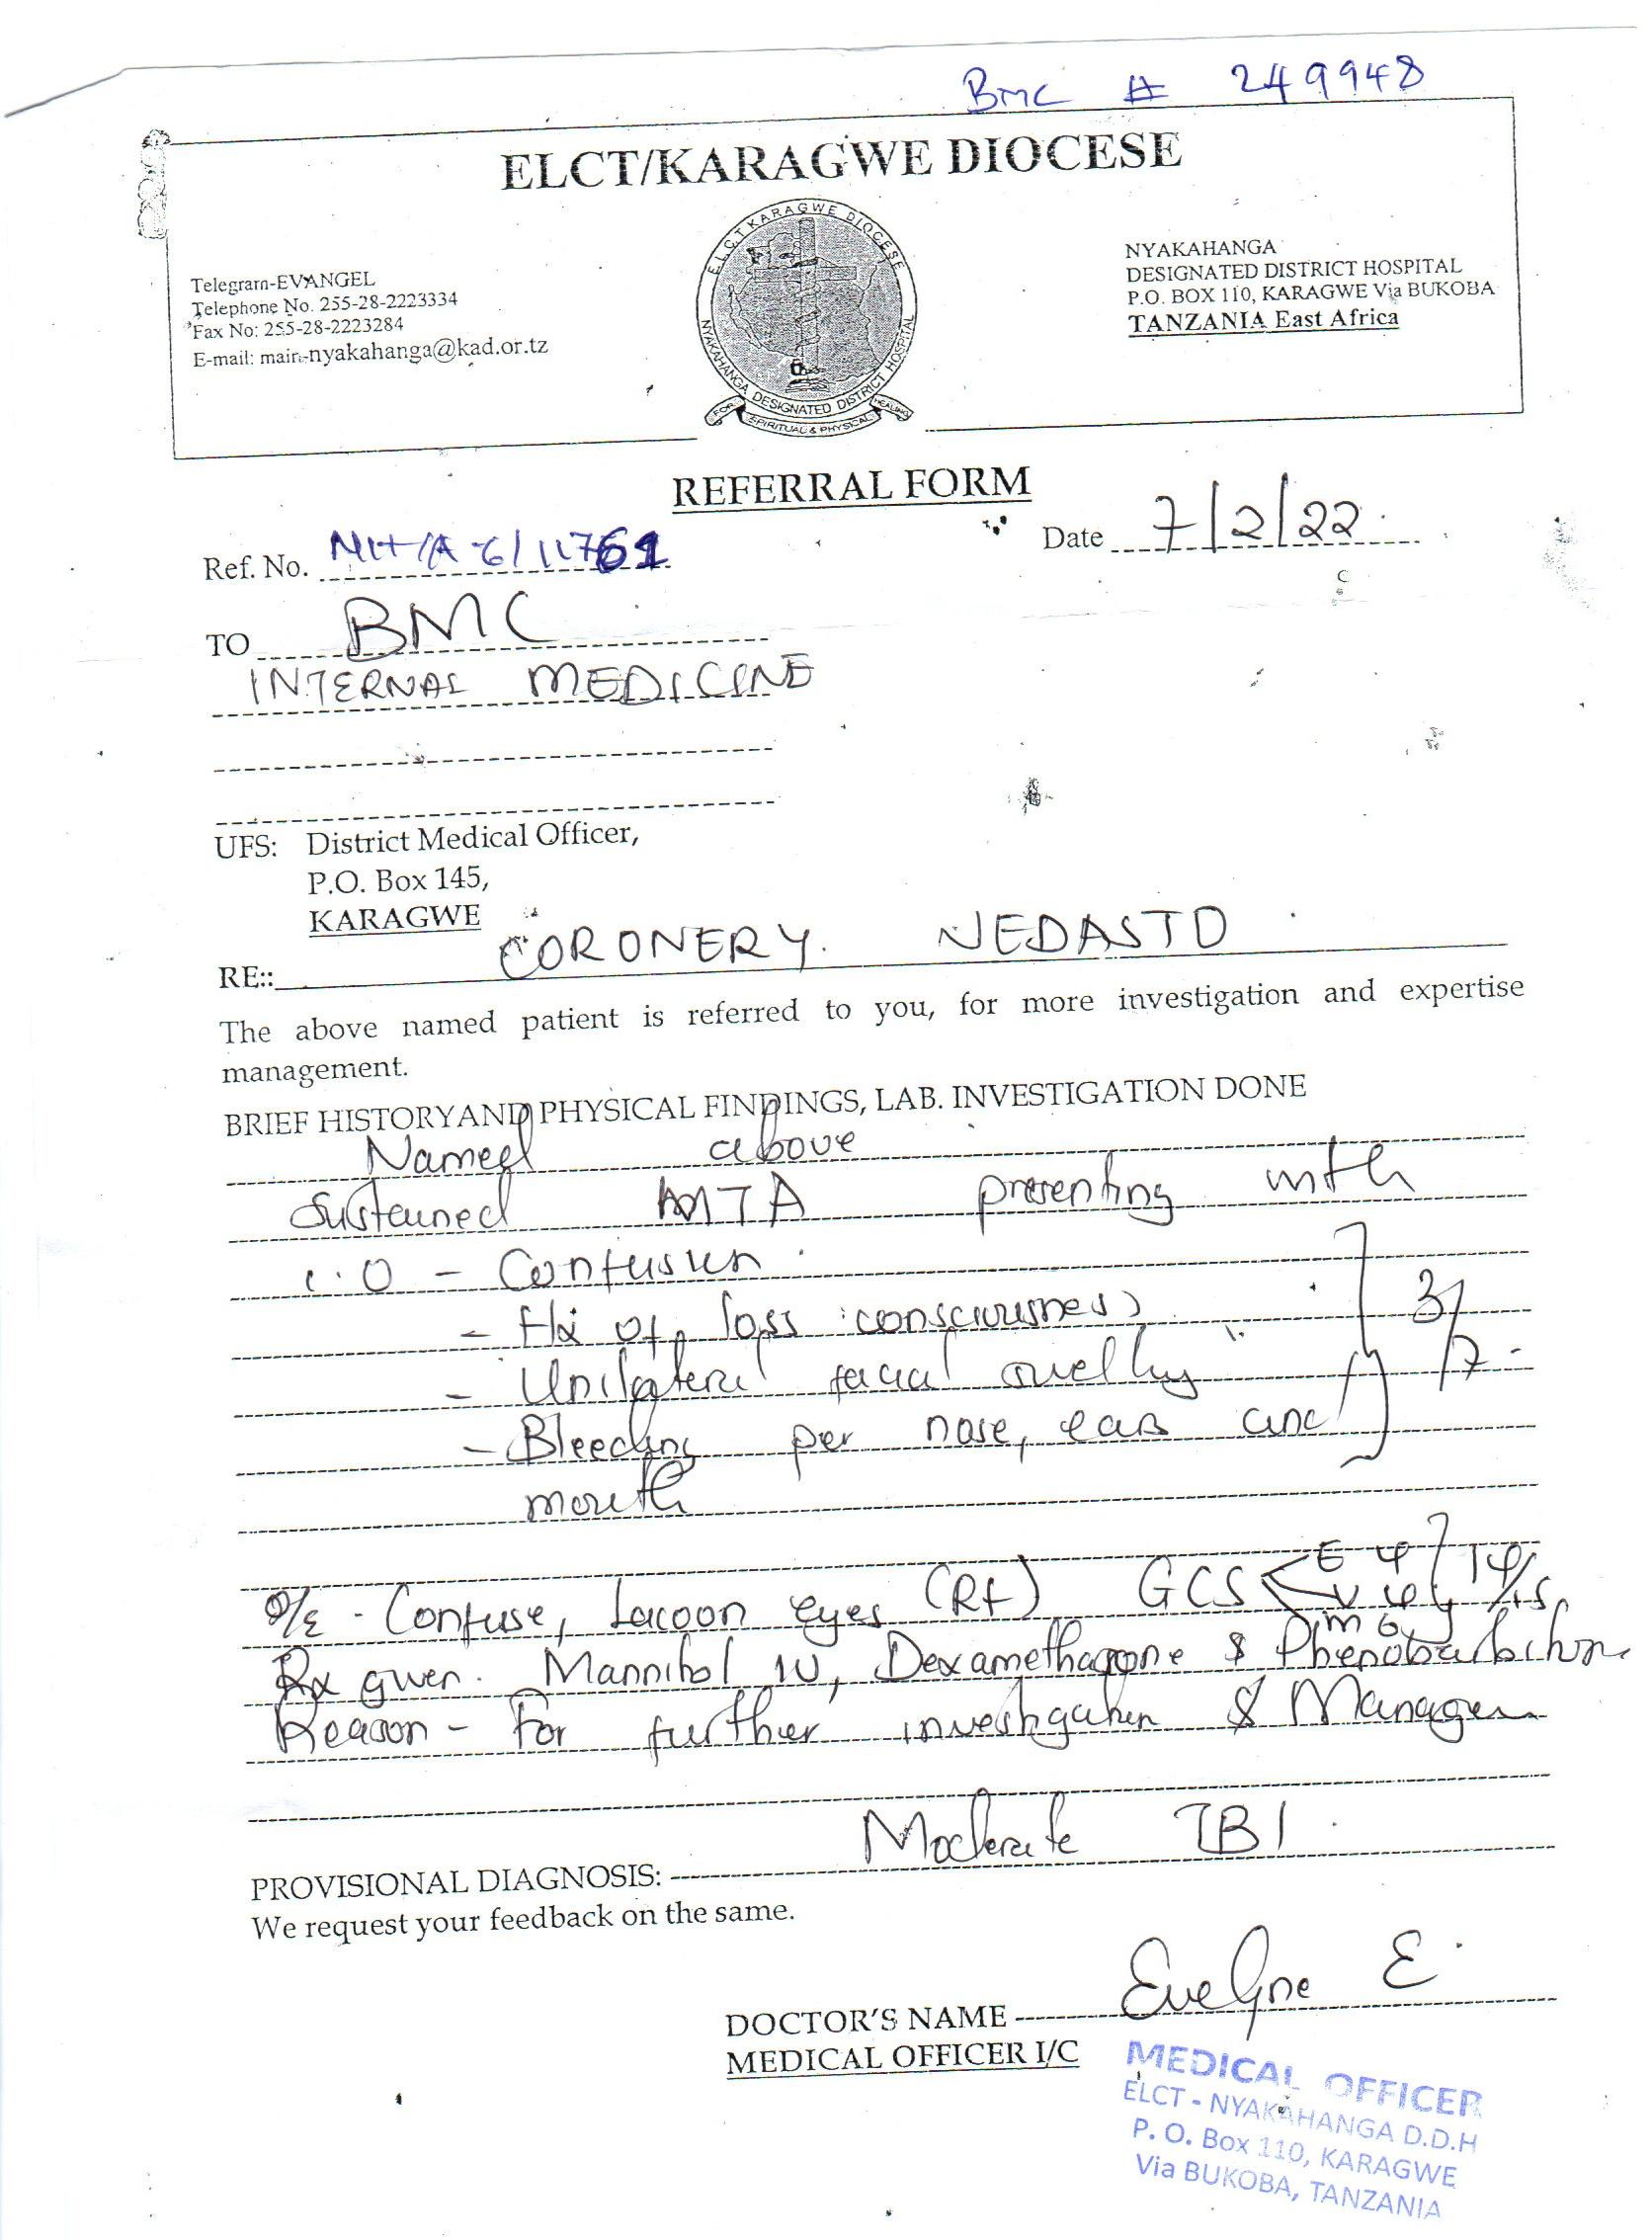 BMC # 249948
ELCT/KARAGWE DIOCESE
Telegram-EVANGEL
Telephone No. 255-28-2223334
Fax No: 255-28-2223284
E-mail: main-nyakahanga@kad.or.tz
E L C T KARAGWE DIOCESE
NYAKAHANGA DESIGNATED DISTRICT HOSPITAL
FOR SPIRITUAL & PHYSICAL HEALING
NYAKAHANGA
DESIGNATED DISTRICT HOSPITAL
P.O. BOX 110, KARAGWE Via BUKOBA
TANZANIA East Africa
REFERRAL FORM
Ref. No.
Date 7/2/22
TO BMC
INTERNAL MEDICINE
UFS: District Medical Officer,
P.O. Box 145,
KARAGWE
RE:: CORONERY. NEDASTO
The above named patient is referred to you, for more investigation and expertise
management.
BRIEF HISTORY AND PHYSICAL FINDINGS, LAB. INVESTIGATION DONE
Named above
sustained MTA presenting with
- Confusion
- Hx of loss consciousness
- Unilateral facial swelling
- Bleeding per nose, ears and
mouth
3/7
O/E - Confuse, Lacoon eyes (Rt) GCS E 4 V 4 M 6 14/15
Rx given. Mannitol IV, Dexamethasone & Phenobarbiton
Reason - For further investigation & Managem
PROVISIONAL DIAGNOSIS: Moderate TBI
We request your feedback on the same.
DOCTOR'S NAME Evelyne E.
MEDICAL OFFICER I/C
MEDICAL OFFICER
ELCT - NYAKAHANGA D.D.H
P. O. Box 110, KARAGWE
Via BUKOBA, TANZANIA